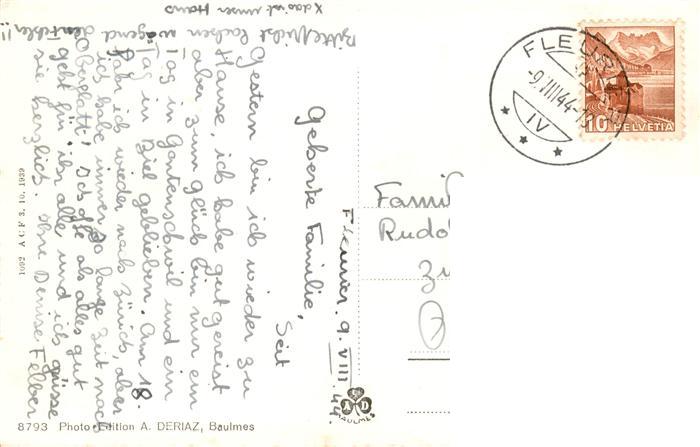 x das ist unser Haus
Bitte nicht lachen wegend den Fehler!!
Fleurier. 9. VIII. 44.
Geberte Familie,
Seit
Gestern bin ich wieder zu
Hause, ich habe gut gereist
aber zum glück bin nur ein
Tag in Gartenschwil und ein
Tag in Biel geblieben. Am 18.
fahr ich wieder nach Zürich, aber
ich habe immer so lange Zeit nach
Oberglatt! Ich hoffe als alles gut
geht für ihr alle und ich grüsse
sie herzlich. Ihre Denise Felber
Famil
Rudo
Zu
FLEURI
-9.VIII.44-
IV
10 HELVETIA
A D
BAULMES
1062 A C F S. 10. 1939
8793 Photo-Edition A. DERIAZ, Baulmes